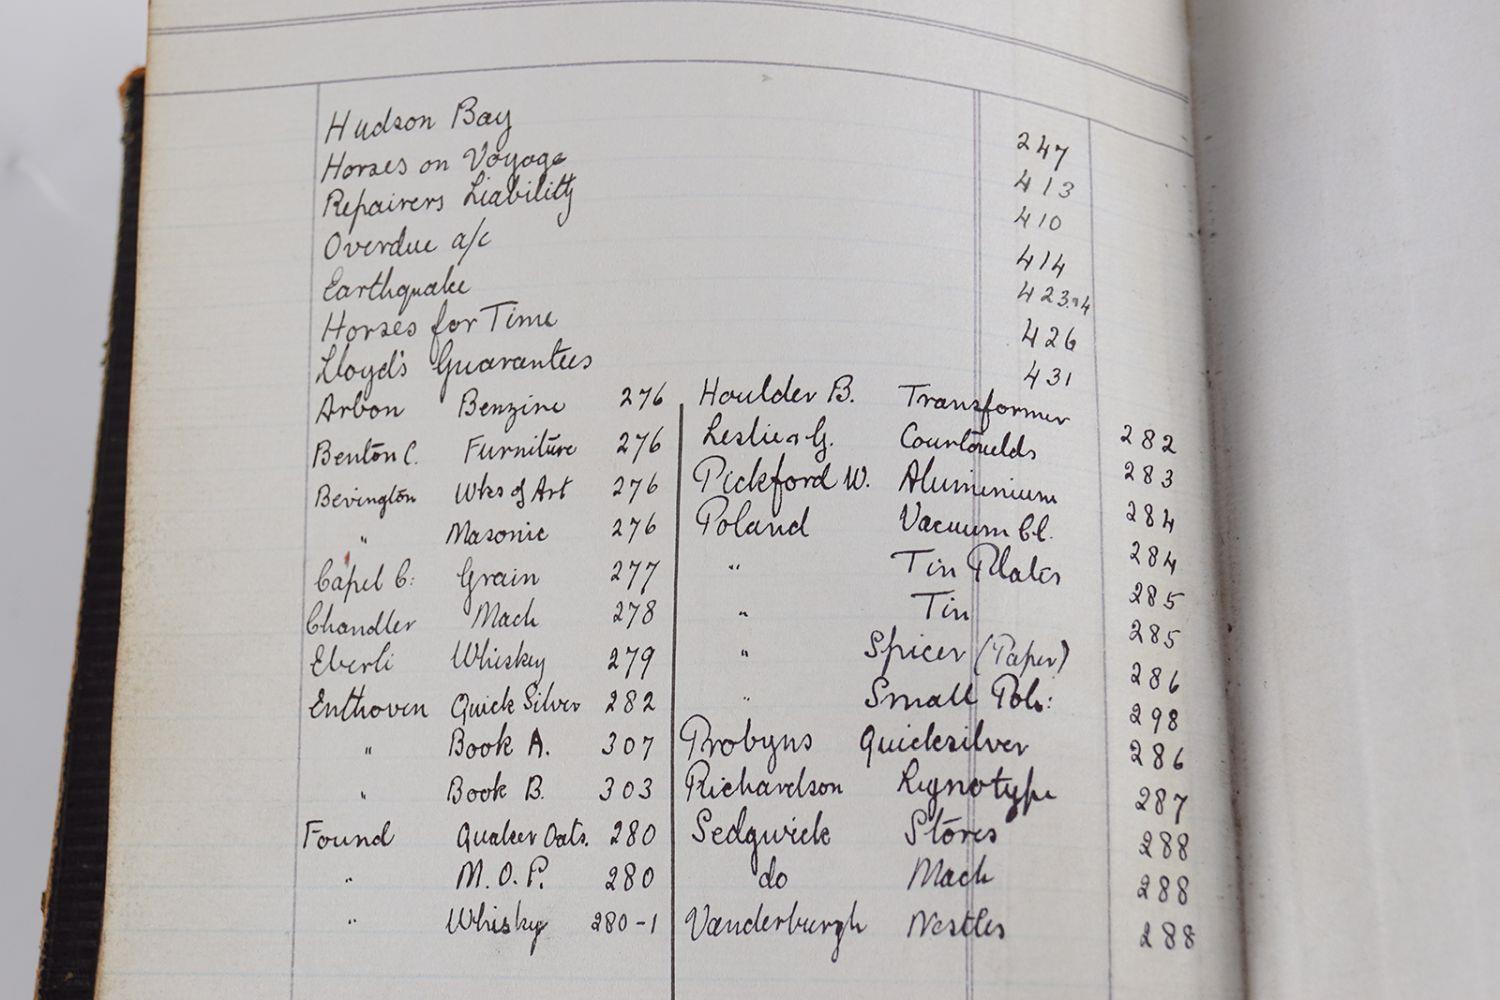 Hudson Bay 247
Horses on Voyage 413
Repairers Liability 410
Overdue a/c 414
Earthquake 423-4
Horses for Time 426
Lloyd's Guarantees 431
Arbon Benzine 276 Houlder B. Transformer 282
Benton C. Furniture 276 Leslie & G. Courtoulds 283
Bevington Wks of Art 276 Pickford W. Aluminium 284
" Masonic 276 Poland Vacuum Cl. 284
Capel C: Grain 277 " Tin Plates 285
Chandler Mach 278 " Tin 285
Eberli Whiskey 279 " Spicer (Paper) 286
Enthoven Quick Silver 282 " Small Pols: 298
" Book A. 307 Probyns Quicksilver 286
" Book B. 303 Richardson 287
Found Quaker Oats. 280 Sedgwick Stores 288
" M.O.P. 280 do Mach 288
" Whisky 280-1 Vanderburgh Nestles 288